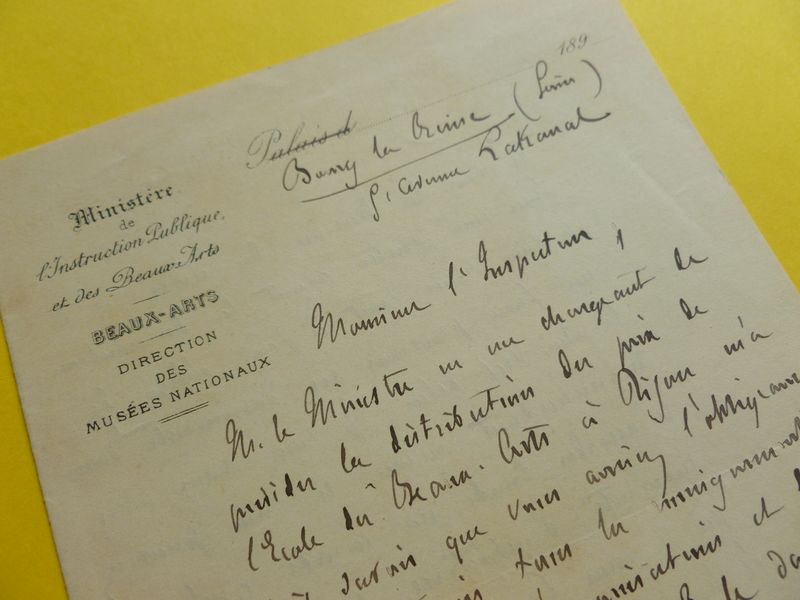 189
Palais d
Bourg la Reine (Seine)
9, avenue Lakanal
Ministère
de
l'Instruction Publique
et des Beaux-Arts
BEAUX-ARTS
DIRECTION
DES
MUSÉES NATIONAUX
Monsieur l'Inspecteur,
M. le Ministre en me chargeant de
présider la distribution des prix de
l'Ecole des Beaux-Arts à Dijon m'a
que vous auriez l'obligeance
tous les renseignements
et